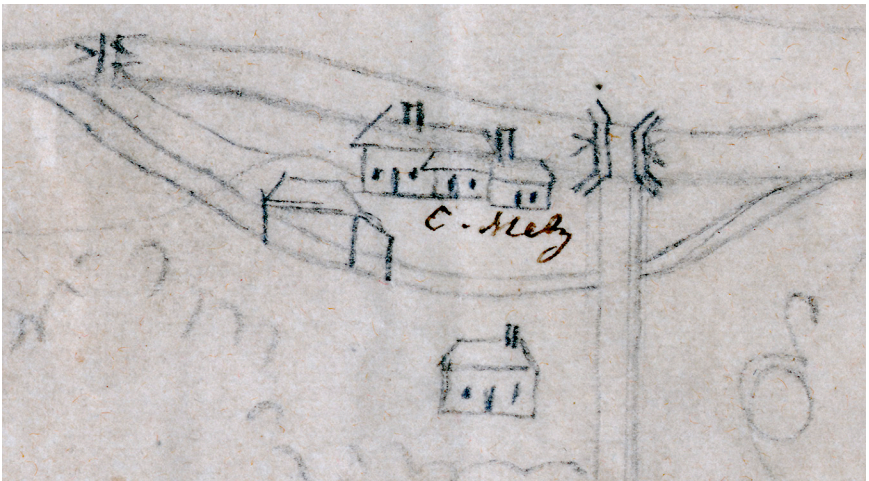 C. Mez